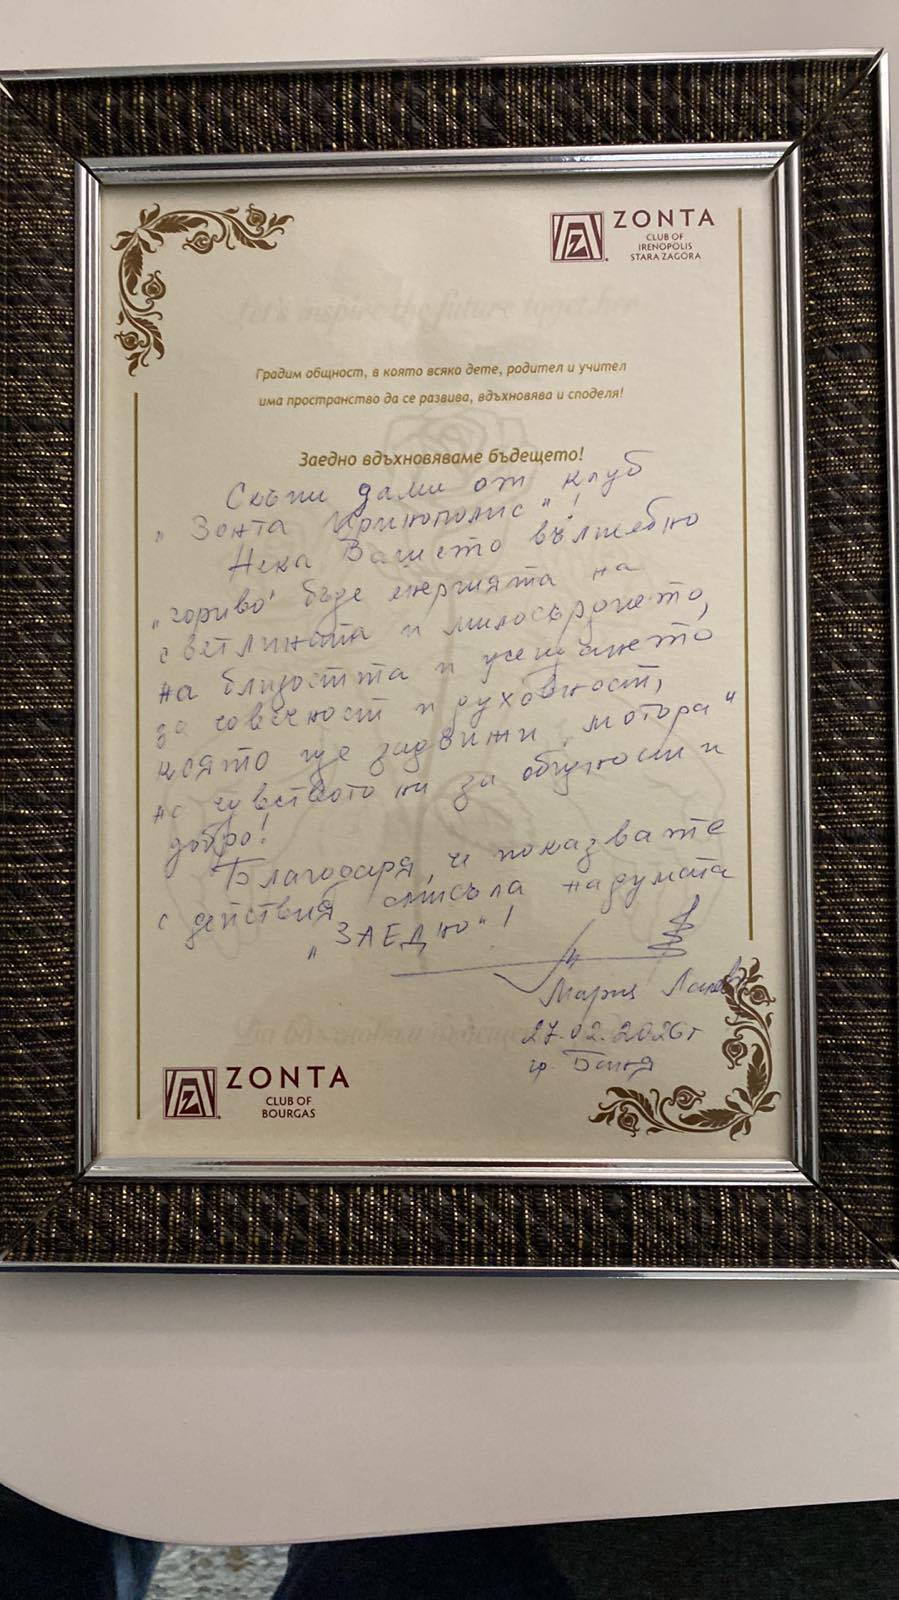 ZONTA
CLUB OF
IRENOPOLIS
STARA ZAGORA
Let's inspire the future together
Градим общност, в която всяко дете, родител и учител
има пространство да се развива, вдъхновява и споделя!
Заедно вдъхновяваме бъдещето!
Скъпи дами от клуб
"Зонта Иринополис"!
Нека Вашето вълшебно
"гориво" бъде енергията на
светлината и милосърдието,
на близостта и усещането
за човечност и духовност,
която ще задвижи "мотора"
на чувството ни за общност и
добро!
Благодаря, че показвате
с действия смисъла на думата
"ЗАЕДНО"!
Мария
27.02.2026 г
гр. Баня
ZONTA
CLUB OF
BOURGAS